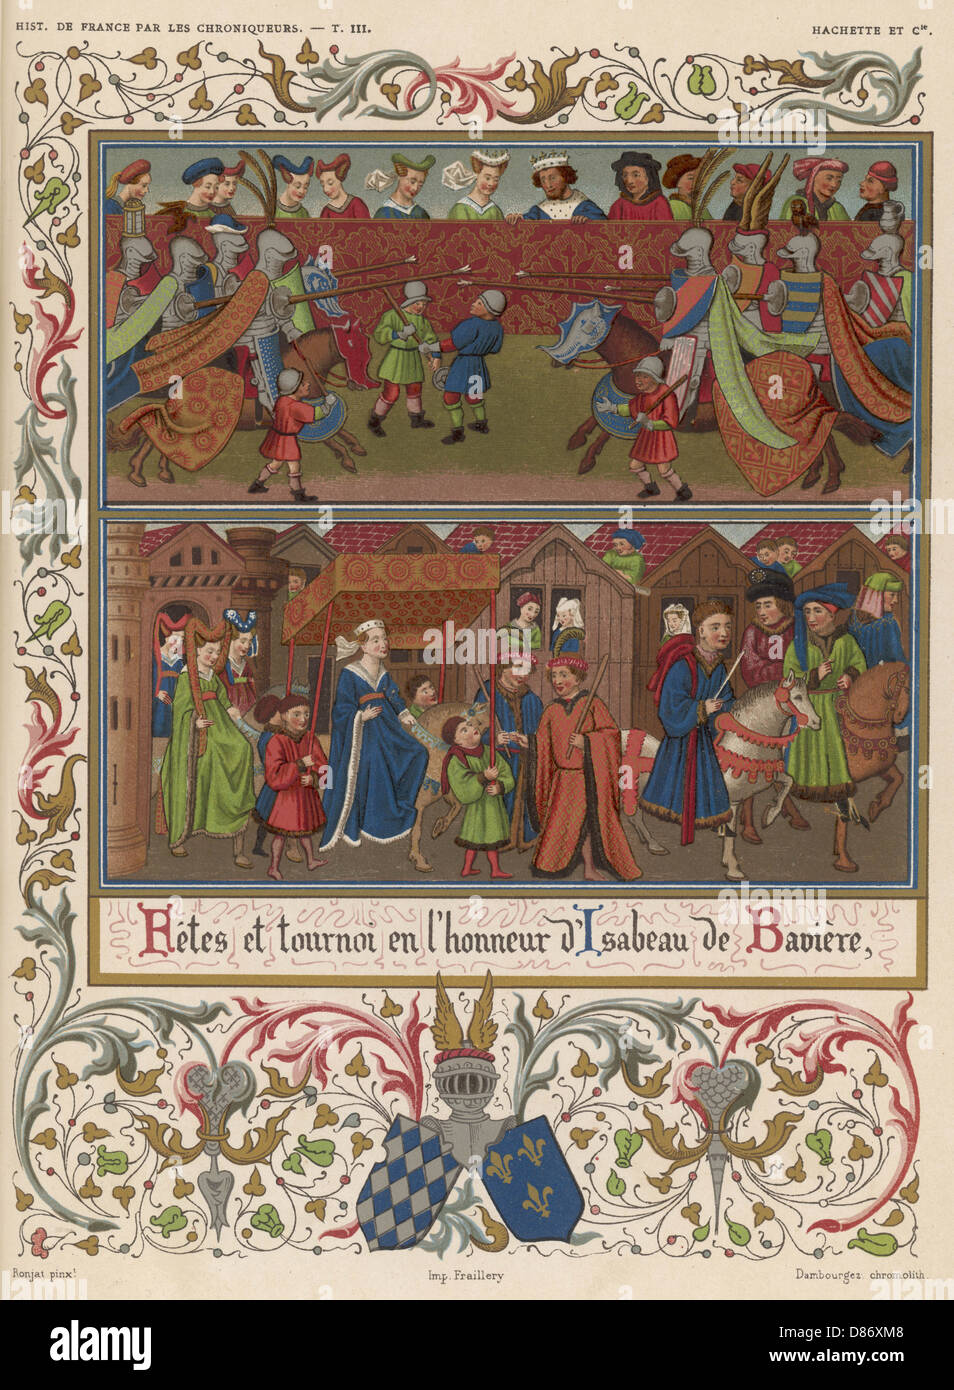 HIST. DE FRANCE PAR LES CHRONIQUEURS. — T. III.
HACHETTE ET Cie.
Fêtes et tournoi en l'honneur d'Isabeau de Bavière,
Ronjat pinxt
Imp. Fraillery
Dambourgez chromolith.
alamy
D86XM8
www.alamy.com